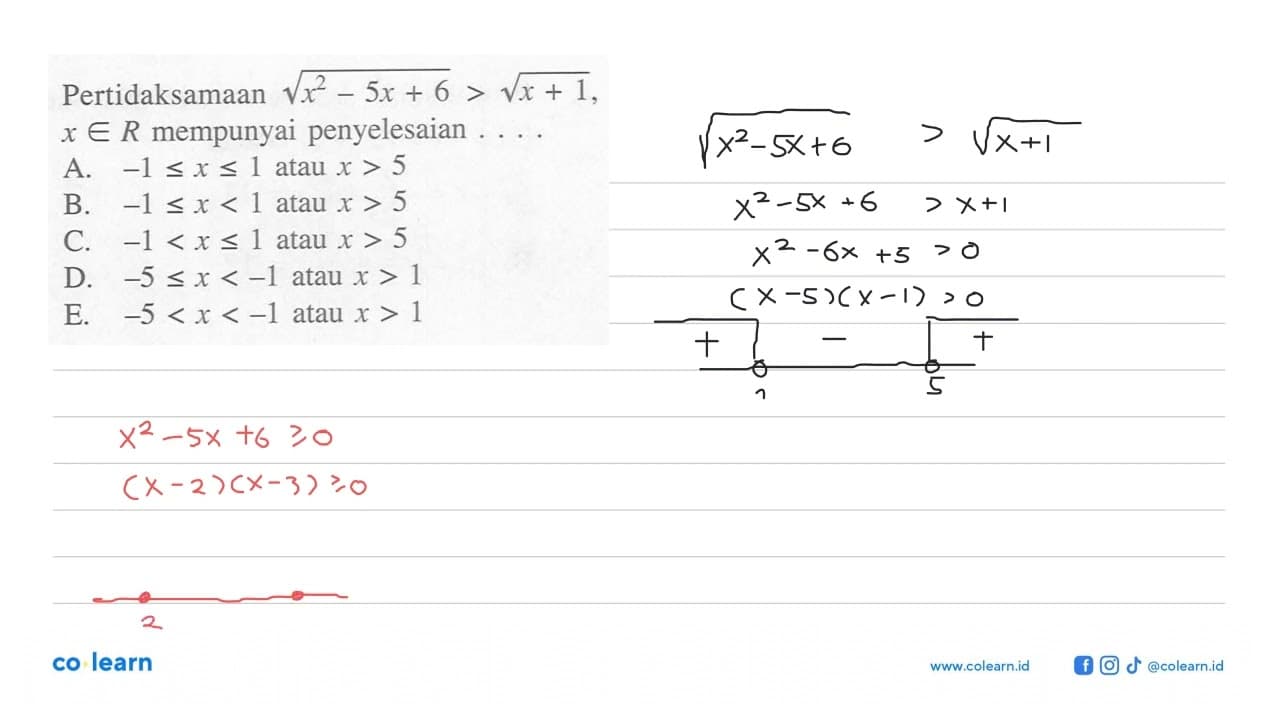 Pertidaksamaan √(x² – 5x + 6) > √(x + 1),
x ∈ R mempunyai penyelesaian . . . .
A. –1 ≤ x ≤ 1 atau x > 5
B. –1 ≤ x < 1 atau x > 5
C. –1 < x ≤ 1 atau x > 5
D. –5 ≤ x < –1 atau x > 1
E. –5 < x < –1 atau x > 1
√(x²-5x+6) > √(x+1)
x²-5x+6 > x+1
x²-6x+5 >0
(x-5)(x-1)>0
+ - +
1 5
x²-5x+6 ≥0
(x-2)(x-3)≥0
2
co learn
www.colearn.id
@colearn.id